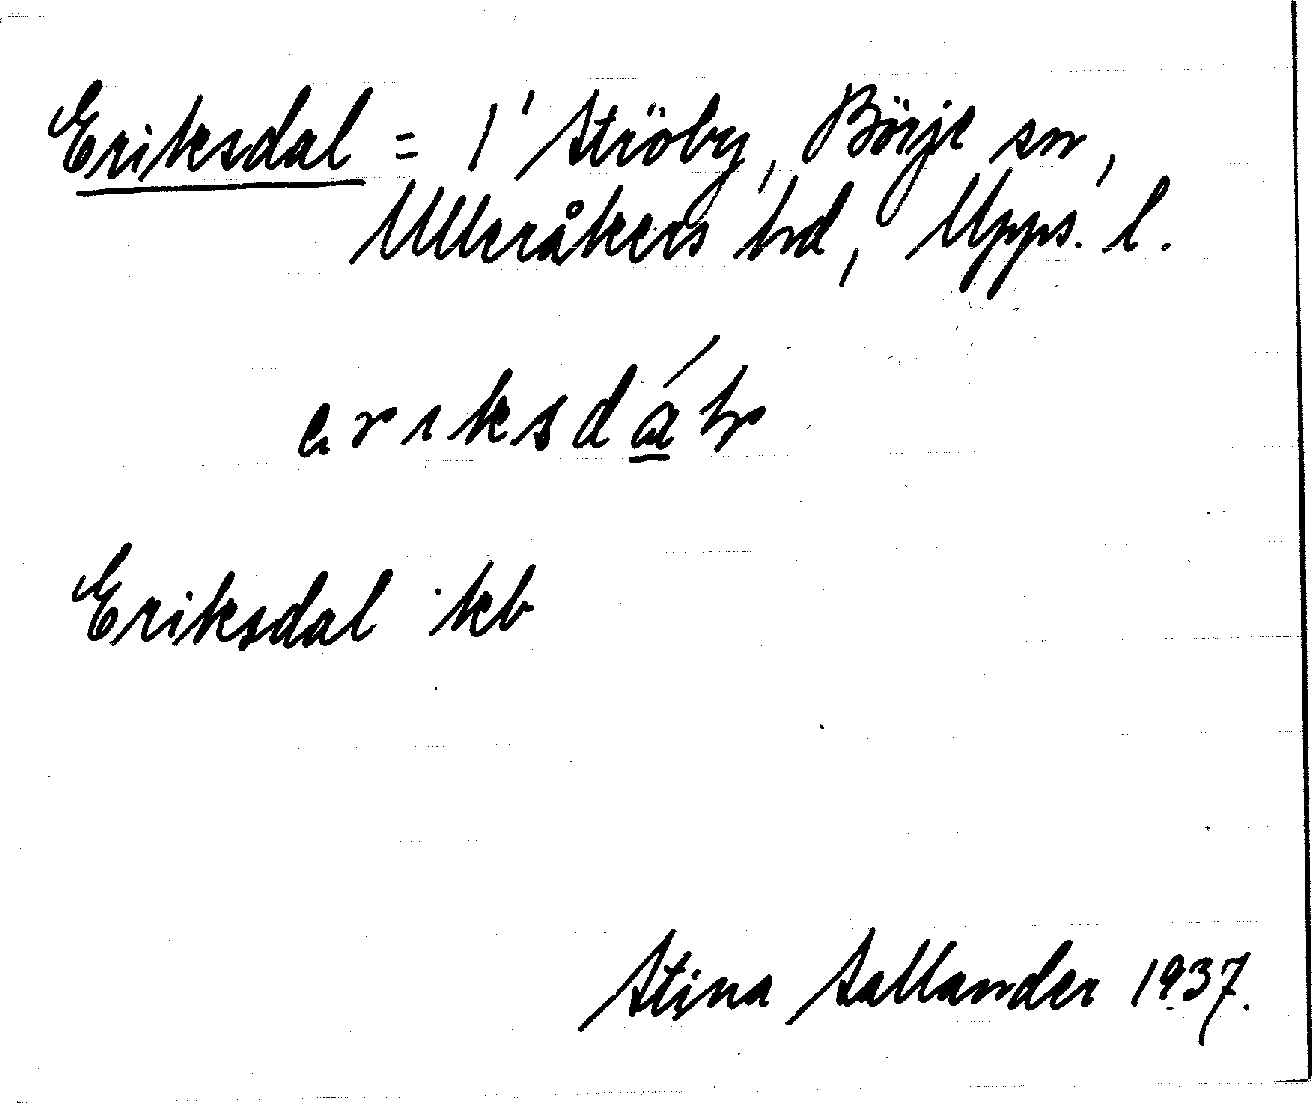 Eriksdal = 1' Ströby, Börje sn,
Ulleråkers hd, Upps. l.
Eriksdal kb
Stina Sallander 1937.